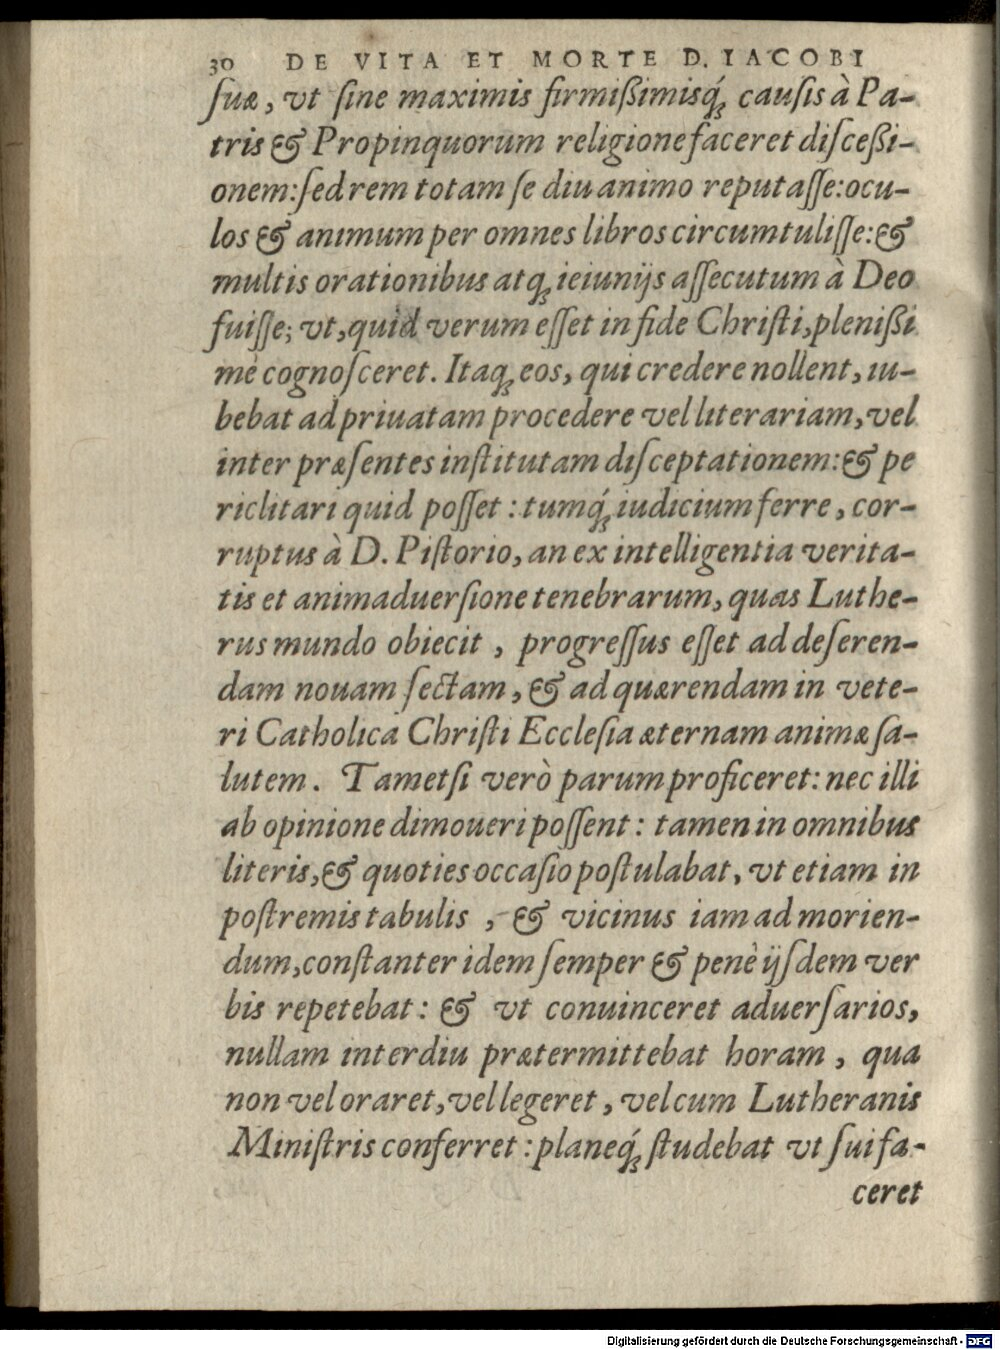 30 DE VITA ET MORTE D. IACOBI
ſuæ, vt ſine maximis firmißimisq́; cauſis à Pa-
tris & Propinquorum religione faceret diſceßi-
onem: ſed rem totam ſe diu animo reputaſſe: ocu-
los & animum per omnes libros circumtuliſſe: &
multis orationibus atq; ieiunijs aſſecutum à Deo
fuiſſe; vt, quid verum eſſet in fide Chriſti, plenißi
mè cognoſceret. Itaq; eos, qui credere nollent, iu-
bebat ad priuatam procedere vel literariam, vel
inter præſentes inſtitutam diſceptationem: & pe
riclitari quid poſſet: tumq́; iudicium ferre, cor-
ruptus à D. Piſtorio, an ex intelligentia verita-
tis et animaduerſione tenebrarum, quas Luthe-
rus mundo obiecit, progreſſus eſſet ad deſeren-
dam nouam ſectam, & ad quærendam in vete-
ri Catholica Chriſti Eccleſia æternam animæ ſa-
lutem. Tametſi verò parum proficeret: nec illi
ab opinione dimoueri poſſent: tamen in omnibus
literis, & quoties occaſio poſtulabat, vt etiam in
poſtremis tabulis, & vicinus iam ad morien-
dum, conſtanter idem ſemper & penè ijſdem ver
bis repetebat: & vt conuinceret aduerſarios,
nullam interdiu prætermittebat horam, qua
non vel oraret, vel legeret, vel cum Lutheranis
Miniſtris conferret: planeq́; ſtudebat vt ſui fa-
ceret
Digitalisierung gefördert durch die Deutsche Forschungsgemeinschaft - DFG